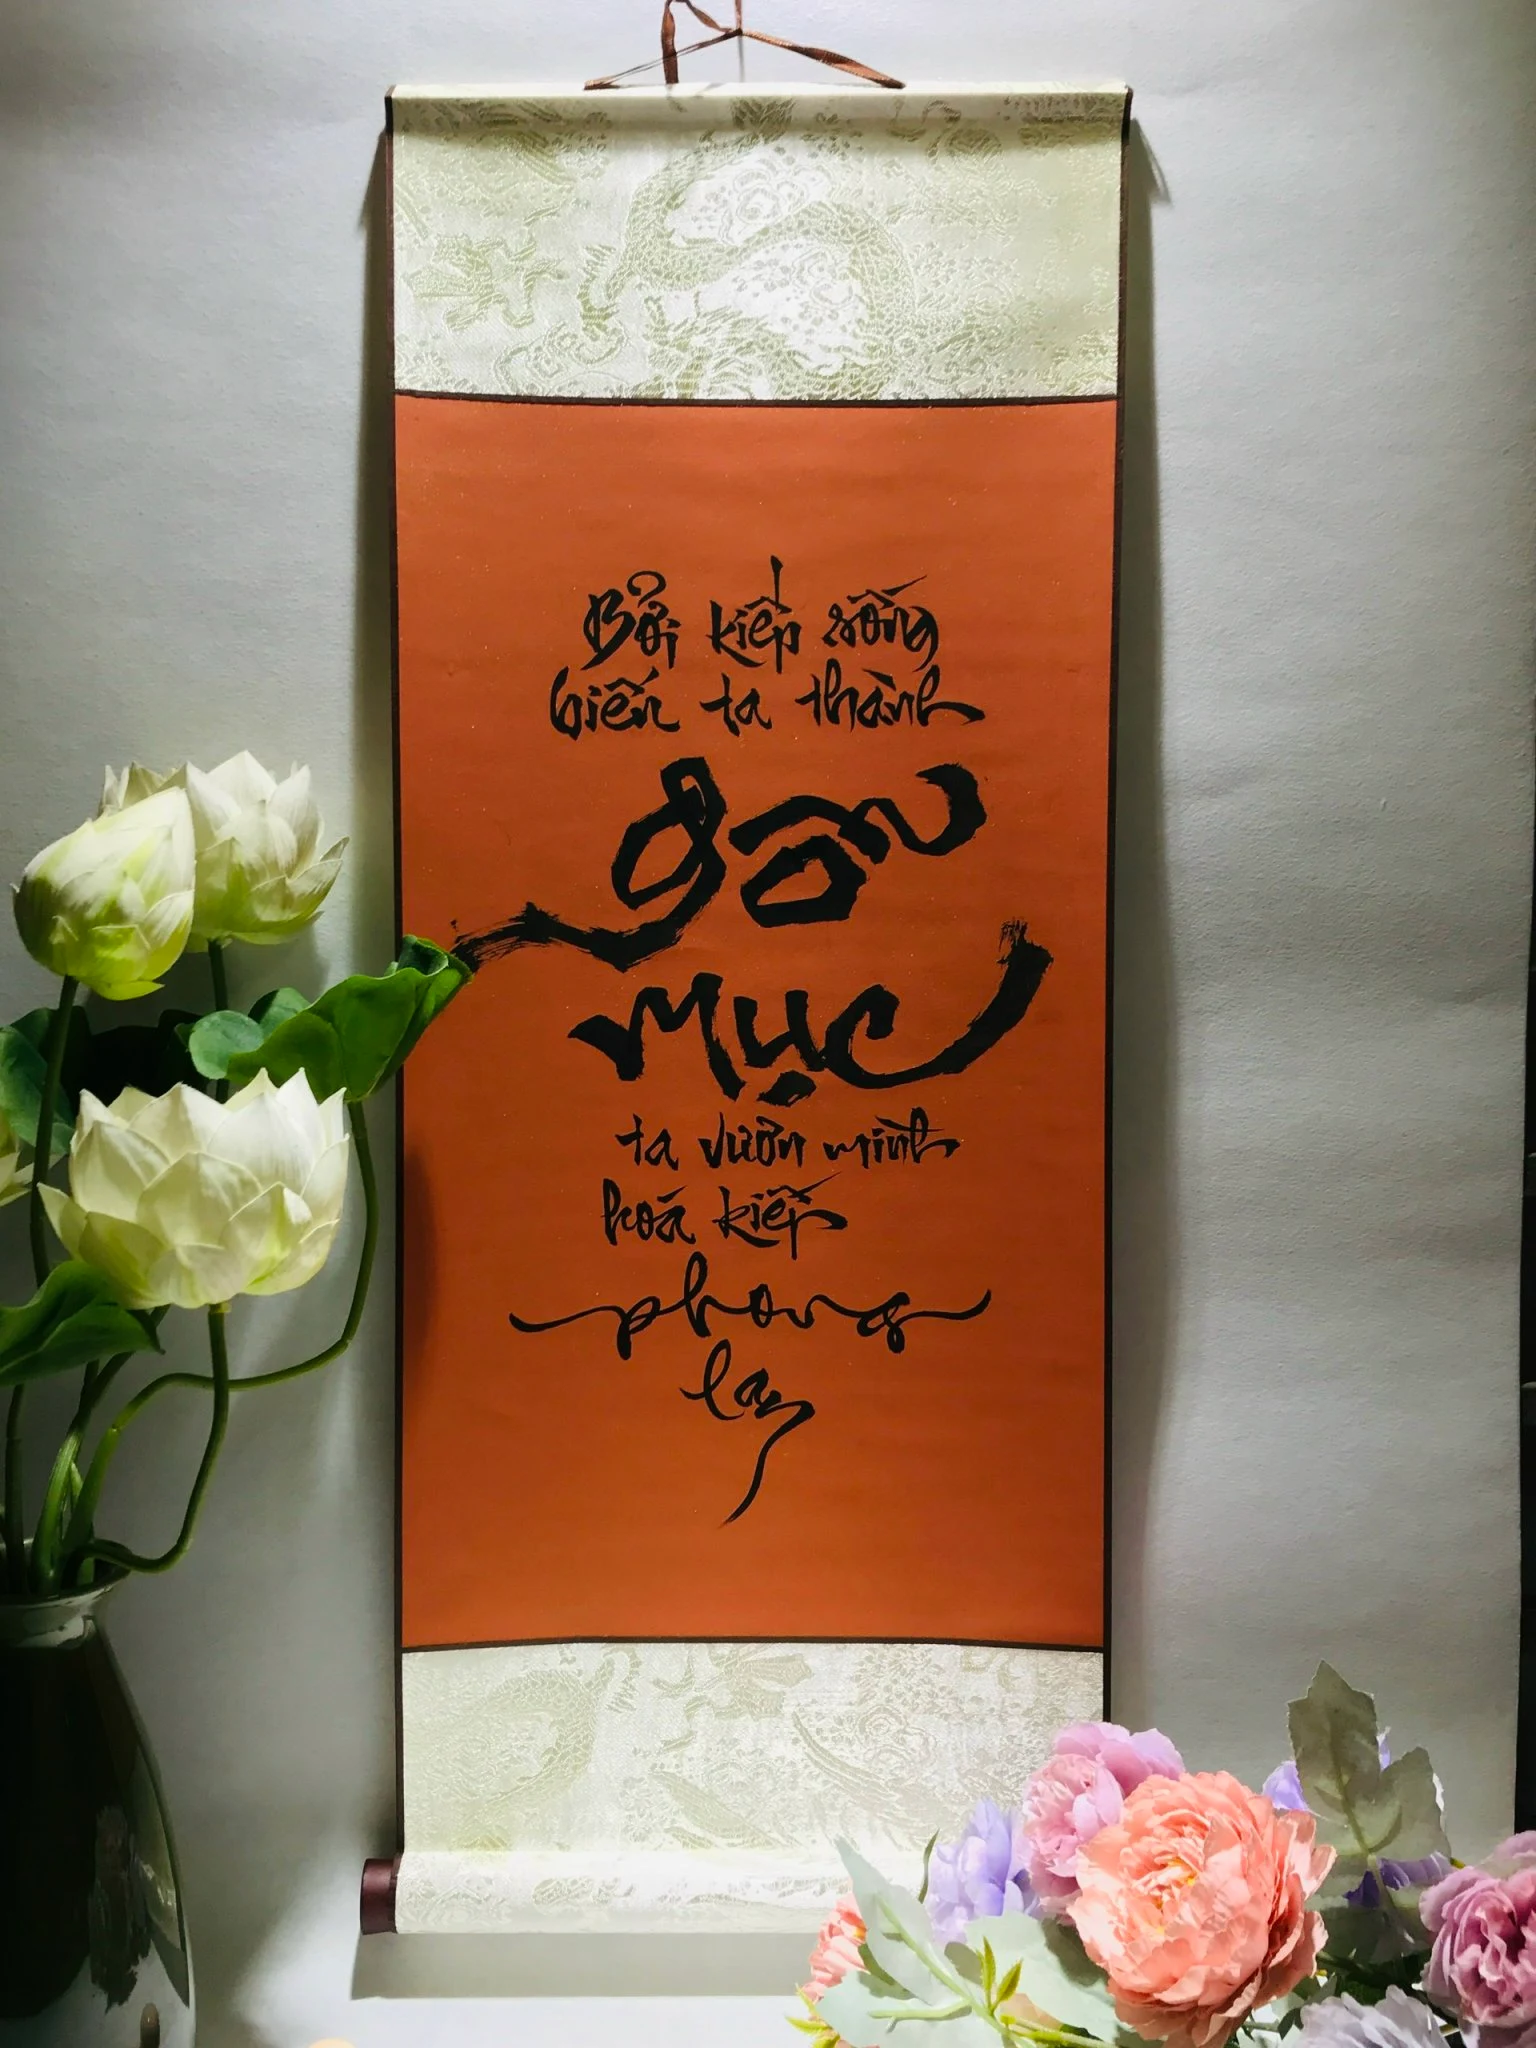 Bởi kiếp sống
biến ta thành
gỗ
mục
ta vươn mình
hoá kiếp
phong
lan